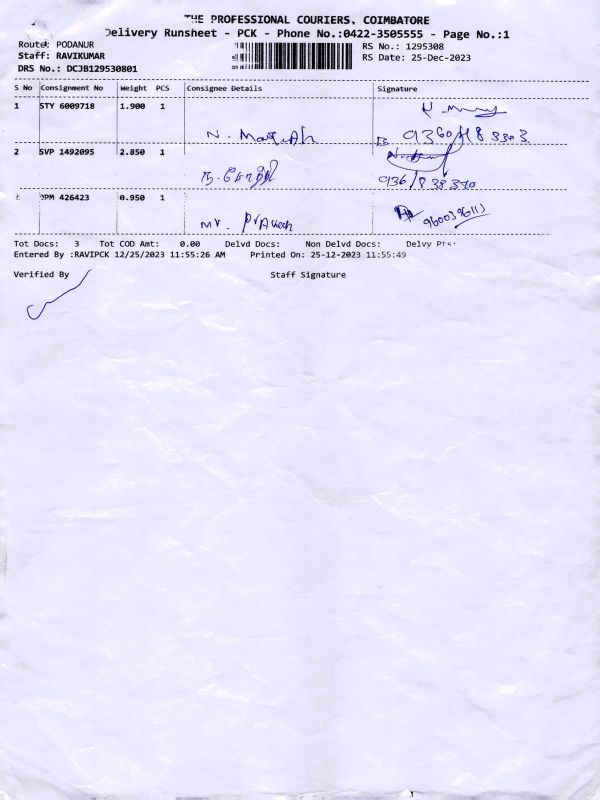 THE PROFESSIONAL COURIERS, COIMBATORE
Delivery Runsheet - PCK - Phone No.:0422-3505555 - Page No.:1
Route: PODANUR
RS No.: 1295308
Staff: RAVIKUMAR
RS Date: 25-Dec-2023
DRS No.: DCJB129530801
S No Consignment No Weight PCS Consignee Details Signature
1 STY 6009718 1.900 1
N.
2 SVP 1492095 2.850 1
PM 426423 0.950 1
Mr.
9600396113
Tot Docs: 3 Tot COD Amt: 0.00 Delvd Docs: Non Delvd Docs: Delvy Pts:
Entered By :RAVIPCK 12/25/2023 11:55:26 AM Printed On: 25-12-2023 11:55:49
Verified By Staff Signature